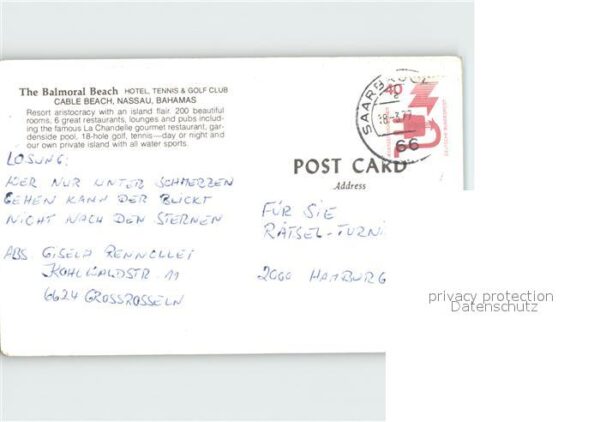 The Balmoral Beach HOTEL, TENNIS & GOLF CLUB
CABLE BEACH, NASSAU, BAHAMAS
Resort aristocracy with an island flair. 200 beautiful
rooms, 6 great restaurants, lounges and pubs includ-
ing the famous La Chandelle gourmet restaurant, gar-
denside pool, 18-hole golf, tennis—day or night and
our own private island with all water sports.
LOSUNG:
WER NUR UNTER SCHMERZEN
GEHEN KANN DER BLICKT
NICHT NACH DEN STERNEN
ABS GISELA
KOHLWALDSTR. 11
6624 GROSSROSSELN
SAARBRÜCKEN
66
40
POST CARD
Address
FÜR SIE
RÄTSEL-TURNI
2000 HAMBURG
privacy protection
Datenschutz